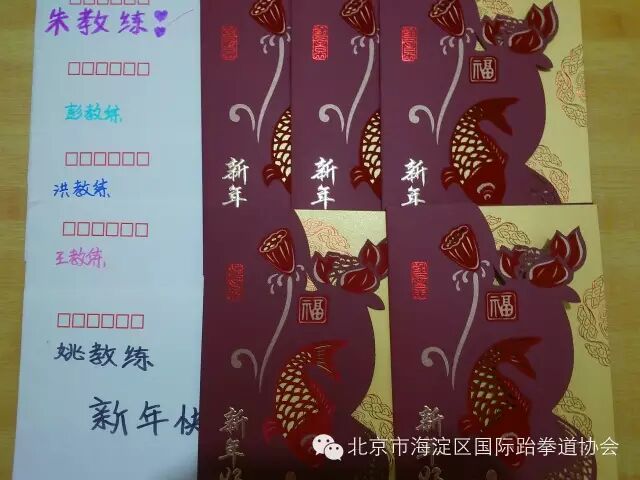 朱教练
彭教练
洪教练
王教练
姚教练
新年快
福
新年
新年
新年
福
新年好
福
新年好
北京市海淀区国际跆拳道协会